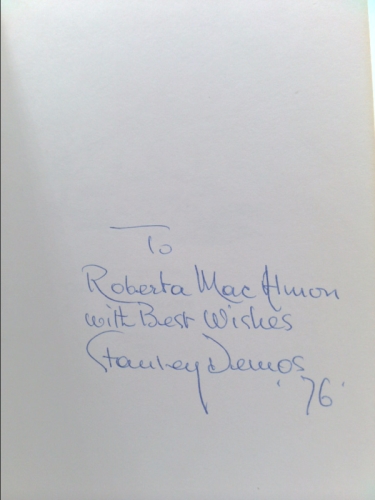 To
Roberta Mac Almon
with Best Wishes
Stanley Demos
'76'